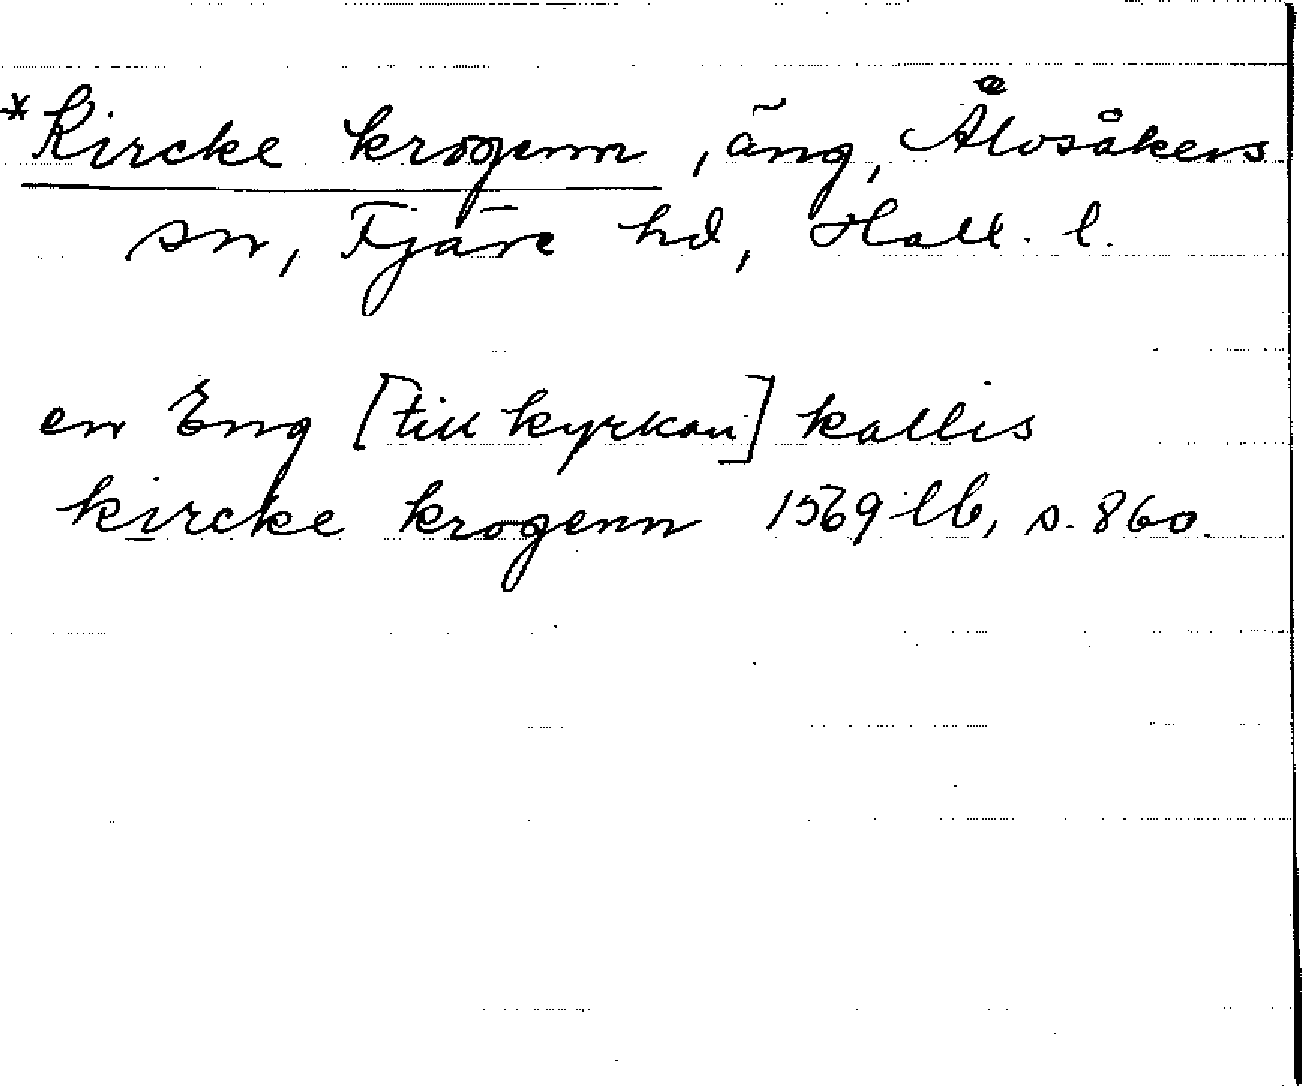 *Kircke krogenn, äng, Ålvsåkers
sn, Fjäre hd, Hall. l.
en Eng [till kyrkan] kallis
kircke krogenn 1569 lb, s. 860.